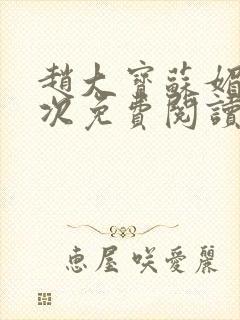 趙大寶蘇媚
次免費閱讀
惠屋咲愛麗